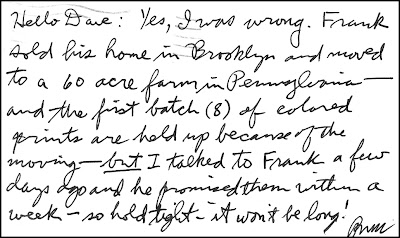 Hello Dave: Yes, I was wrong. Frank
sold his home in Brooklyn and moved
to a 60 acre farm in Pennsylvania—
and the first batch (8) of colored
prints are held up because of the
moving—but I talked to Frank a few
days ago and he promised them within a
week—so hold tight—it won't be long!